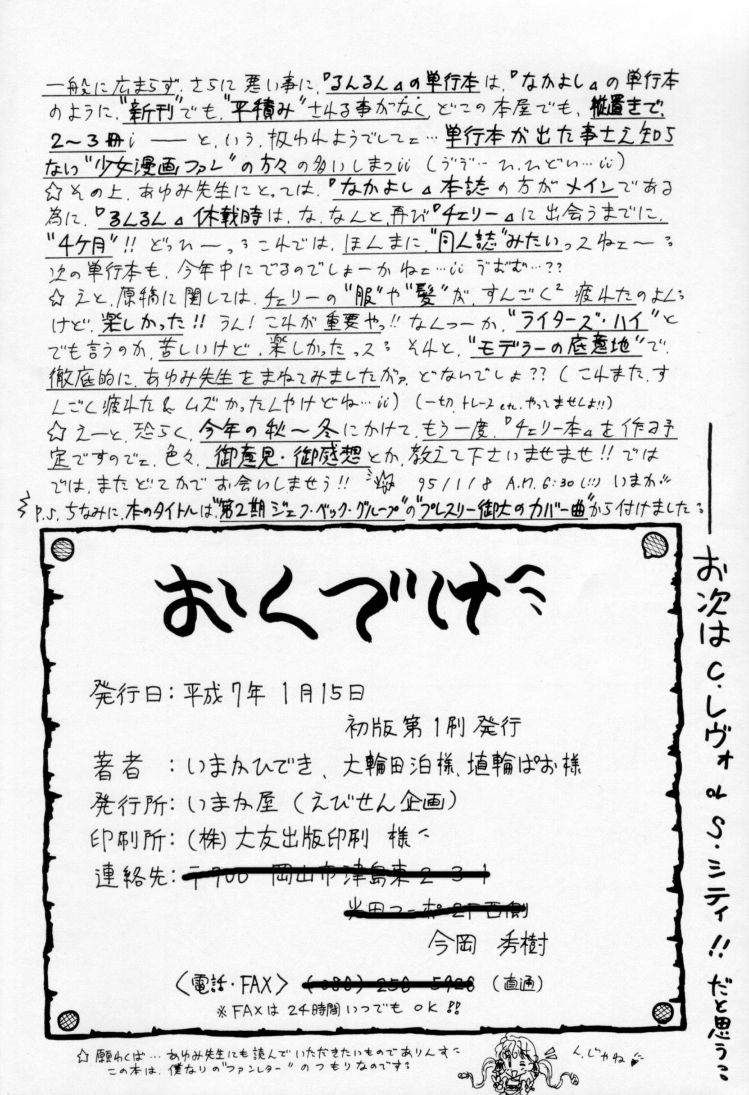 一般に広まらず、さらに悪い事に、『るんるん』の単行本は、『なかよし』の単行本
のように、"新刊"でも、"平積み"される事がなく、どこの本屋でも、縦置きで、
2〜3冊 —— と、いう、扱われようでしてェ… 単行本が出た事さえ知ら
ない"少女漫画ファン"の方々の多いしまつ (うぞ… ひ、ひどい…)
☆ その上、あゆみ先生にとっては、『なかよし』本誌の方がメインである
為に、『るんるん』休載時は、な、なんと、再び『チェリー』に出会うまでに、
"4ケ月"!! どっひーっ これでは、ほんまに、"同人誌"みたいっスねェ〜
次の単行本も、今年中にでるのでしょーかねェ… うおむ…??
☆ えと、原稿に関しては、チェリーの"服"や"髪"が、すんごく² 疲れたのよん
けど、楽しかった!! うん! これが重要やっ!! なんつーか、"ライターズ・ハイ"と
でも言うのか、苦しいけど、楽しかったっス それと、"モデラーの底意地"で、
徹底的に、あゆみ先生をまねてみましたがァ、どないでしょ?? (これまた、す
んごく疲れた & ムズかったんやけどね…) (一切、トレース etc. やってませんよ!!)
☆ えーと、恐らく、今年の秋〜冬にかけて、もう一度、『チェリー本』を作る予
定ですのでェ、色々、御意見・御感想とか、教えて下さいませませ!! では
では、またどこかでお会いしませう!! 95/1/8 A.M. 6:30 (!!) いまか
P.S. ちなみに、本のタイトルは、"第2期 ジェフ・ベック・グループ"の"プレスリー御大のカバー曲"から付けました
おくづけ
発行日：平成7年 1月15日
初版第1刷発行
著者 ：いまかひでき、大輪田泊様、埴輪ぱお様
発行所：いまか屋 (えびせん企画)
印刷所：(株) 大友出版印刷 様
連絡先：
今岡 秀樹
〈電話・FAX〉 (直通)
※FAXは24時間いつでもOK!!
☆ 願わくば… あゆみ先生にも読んでいただきたいものでありんす
この本は、僕なりの"ファンレター"のつもりなのです
んじゃね
お次は C.レヴォ or S.シティ!! だと思う